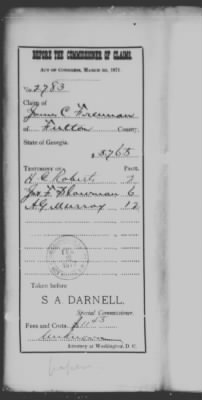 BEFORE THE COMMISSIONER OF CLAIMS.
ACT OF CONGRESS, MARCH 3D, 1871.
No. 2783
Claim of
James C Freeman
of Fulton County.
State of Georgia.
$3765
TESTIMONY OF PAGE.
H. C. Roberts 2
Jas F Plowman 6
A G Murray 12
Taken before
S A DARNELL.
Special Commissioner.
Fees and Costs. $11 45
Attorney at Washington, D. C.